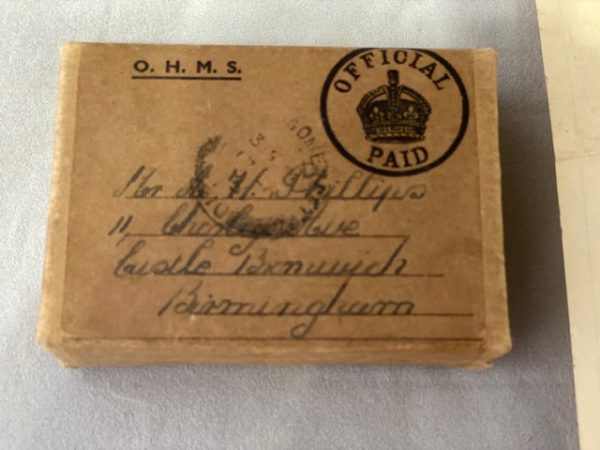 O. H. M. S.
OFFICIAL
PAID
Mr H. Phillips
11,
Castle Bromwich
Birmingham